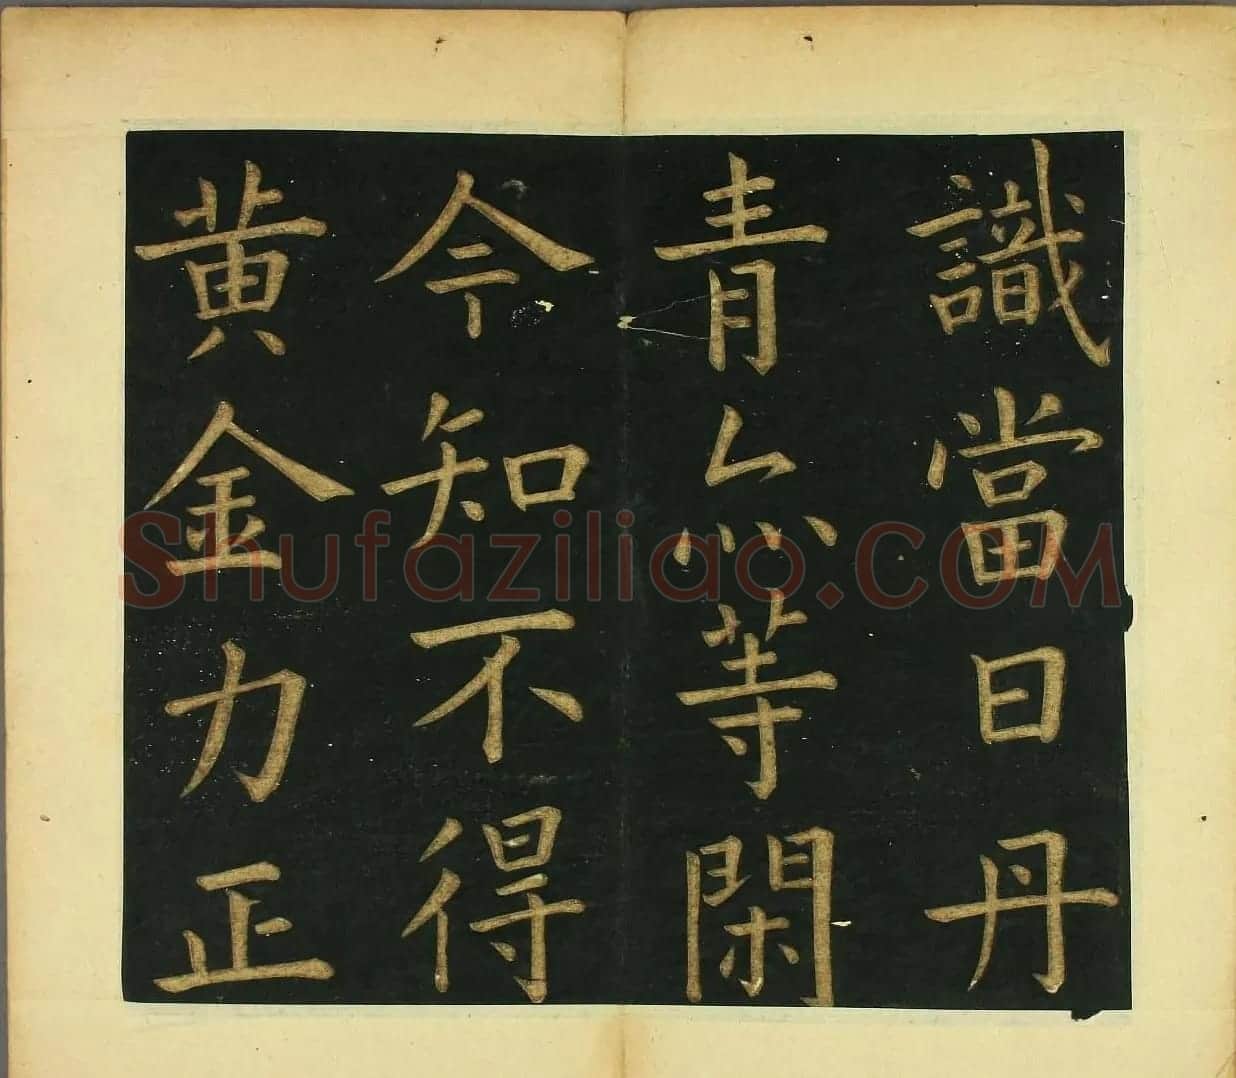 識當日丹
青亦等閑
今知不得
黄金力正
Shufaziliao.COM